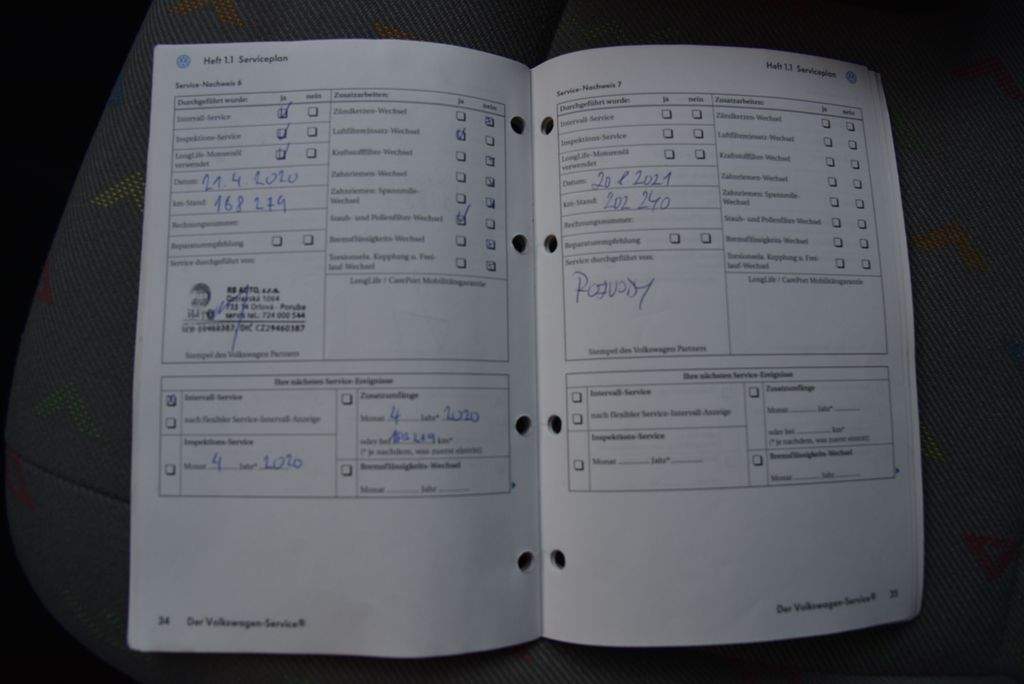 Heft 1.1 Serviceplan
Service-Nachweis 6
Durchgeführt wurde: ja nein
Intervall-Service
Inspektions-Service
LongLife-Motorenöl
verwendet
Datum: 21.4.2020
km-Stand: 168 279
Rechnungsnummer:
Reparaturempfehlung
Service durchgeführt von:
RB AUTO, s.r.o.
Ostravská 1064
735 14 Orlová - Poruba
servis tel.: 724 000 544
DIČ CZ29460387
Stempel des Volkswagen Partners
Zusatzarbeiten: ja nein
Zündkerzen-Wechsel
Luftfiltereinsatz-Wechsel
Kraftstofffilter-Wechsel
Zahnriemen-Wechsel
Zahnriemen: Spannrolle-
Wechsel
Staub- und Pollenfilter-Wechsel
Bremsflüssigkeits-Wechsel
Torsionsels. Kupplung u. Frei-
lauf-Wechsel
LongLife / CarePort Mobilitätsgarantie
Ihre nächsten Service-Ereignisse
Intervall-Service
nach flexibler Service-Intervall-Anzeige
Inspektions-Service
Monat 4 Jahr* 2020
Zusatzumfänge
Monat 4 Jahr* 2020
oder bei km*
(* je nachdem, was zuerst eintritt)
Bremsflüssigkeits-Wechsel
Monat Jahr
34 Der Volkswagen-Service®
Heft 1.1 Serviceplan
Service-Nachweis 7
Durchgeführt wurde: ja nein
Intervall-Service
Inspektions-Service
LongLife-Motorenöl
verwendet
Datum: 20 8 2021
km-Stand: 202 240
Rechnungsnummer:
Reparaturempfehlung
Service durchgeführt von:
ROZVODY
Stempel des Volkswagen Partners
Zusatzarbeiten: ja nein
Zündkerzen-Wechsel
Luftfiltereinsatz-Wechsel
Kraftstofffilter-Wechsel
Zahnriemen-Wechsel
Zahnriemen: Spannrolle-
Wechsel
Staub- und Pollenfilter-Wechsel
Bremsflüssigkeits-Wechsel
Torsionsels. Kupplung u. Frei-
lauf-Wechsel
LongLife / CarePort Mobilitätsgarantie
Ihre nächsten Service-Ereignisse
Intervall-Service
nach flexibler Service-Intervall-Anzeige
Inspektions-Service
Monat Jahr*
Zusatzumfänge
Monat Jahr*
oder bei km*
(* je nachdem, was zuerst eintritt)
Bremsflüssigkeits-Wechsel
Monat Jahr
Der Volkswagen-Service® 35